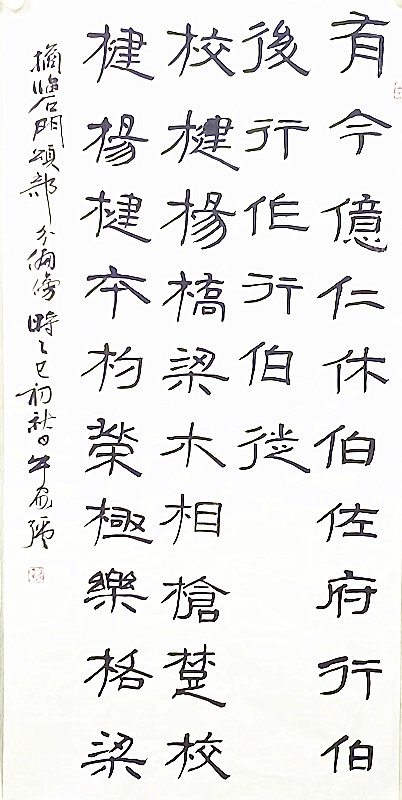 有今億仁休伯佐府行伯
後行作行伯徒
校楗楊橋梁木相槍楚校
楗楊楗本杓榮極樂格梁
摘臨石門頌部分偏傍時乙巳初秋日午